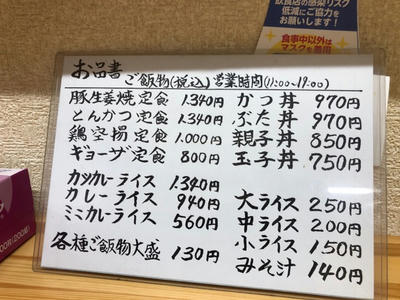 飲食店の感染リスク
低減にご協力を
お願いします!
食事中以外は
マスクを着用
お品書 ご飯物(税込) 営業時間(11:00~19:00)
豚生姜焼定食 1.340円 かつ丼 970円
とんかつ定食 1.340円 ぶた丼 970円
鶏空揚定食 1.000円 親子丼 850円
ギョーザ定食 800円 玉子丼 750円
カツカレーライス 1.340円
カレーライス 940円 大ライス 250円
ミニカレーライス 560円 中ライス 200円
小ライス 150円
各種ご飯物大盛 130円 みそ汁 140円